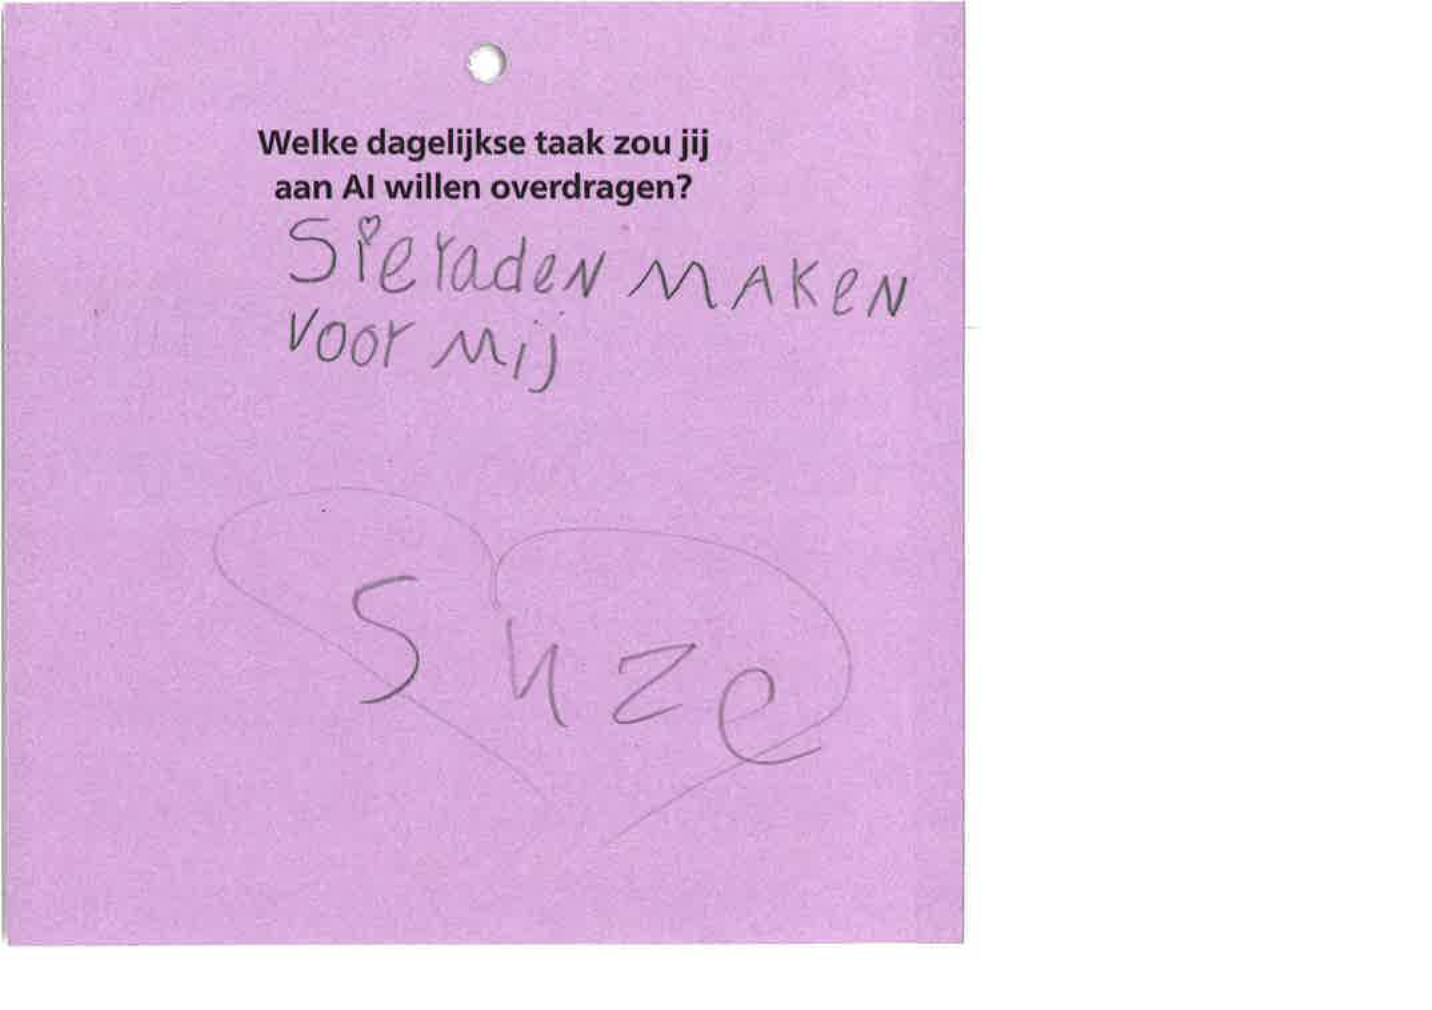 Welke dagelijkse taak zou jij
aan AI willen overdragen?
Sieraden maken
voor mij
Suze